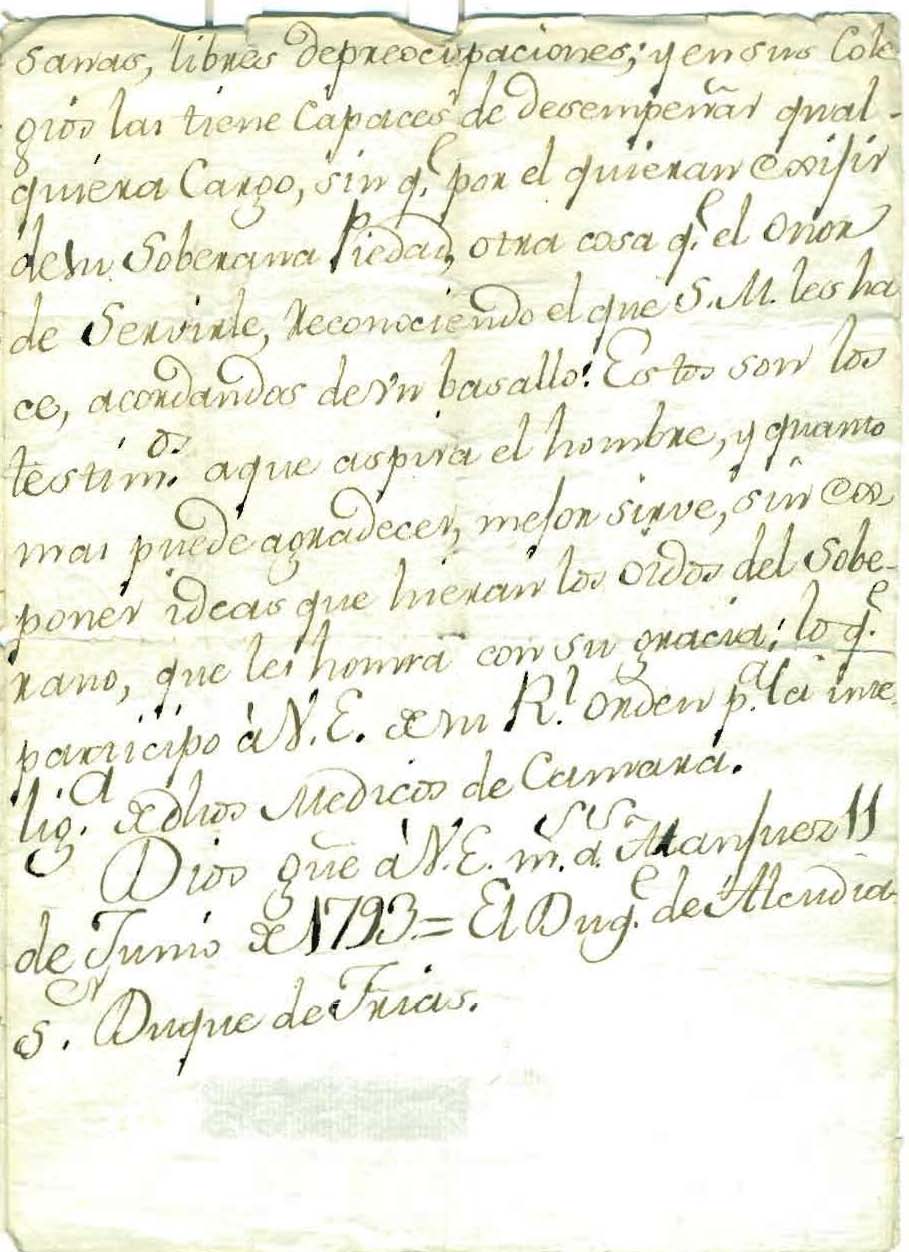 sanas, libres de preocupaciones; y en sus Cole
gios las tiene Capaces de desempeñar qual-
quiera Cargo, sin q.e por el quieran exijir
de su Soberana Piedad, otra cosa q.e el onor
de Servirle, reconociendo el que S. M. les ha
ce, acordandos de un basallo: Estos son los
testim.os a que aspira el hombre, y quanto
mas puede agradecer, mejor sirve, sin ex
poner ideas que hieran los oidos del Sobe-
rano, que les honrra con su gracia: lo q.e
participo à V. E. de su R.l orden p.a la inte
lig.a de dhos Medicos de Camara.
Dios gue à V. E. m.s a.s Aranjuez 11
de Junio de 1793.= El Duq.e de Alcudia
S. Duque de Frias.